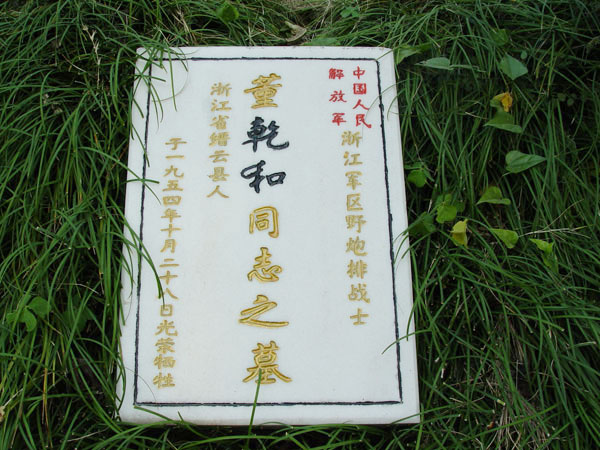 中国人民
解放军
浙江军区野炮排战士
董乾和同志之墓
浙江省缙云县人
于一九五四年十月二十八日光荣牺牲